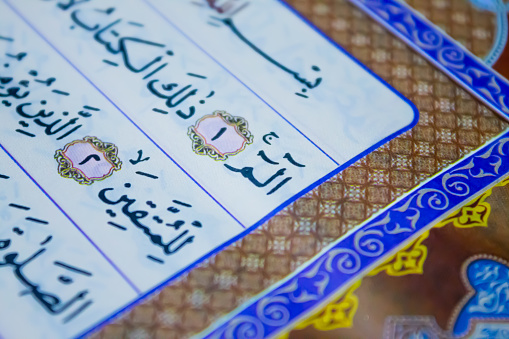 بِسْمِ اللَّهِ
الٓمٓ ۝١ ذَٰلِكَ الْكِتَابُ لَا
لِلْمُتَّقِينَ ۝٢ الَّذِينَ يُؤْمِنُونَ
الصَّلَوٰةَ